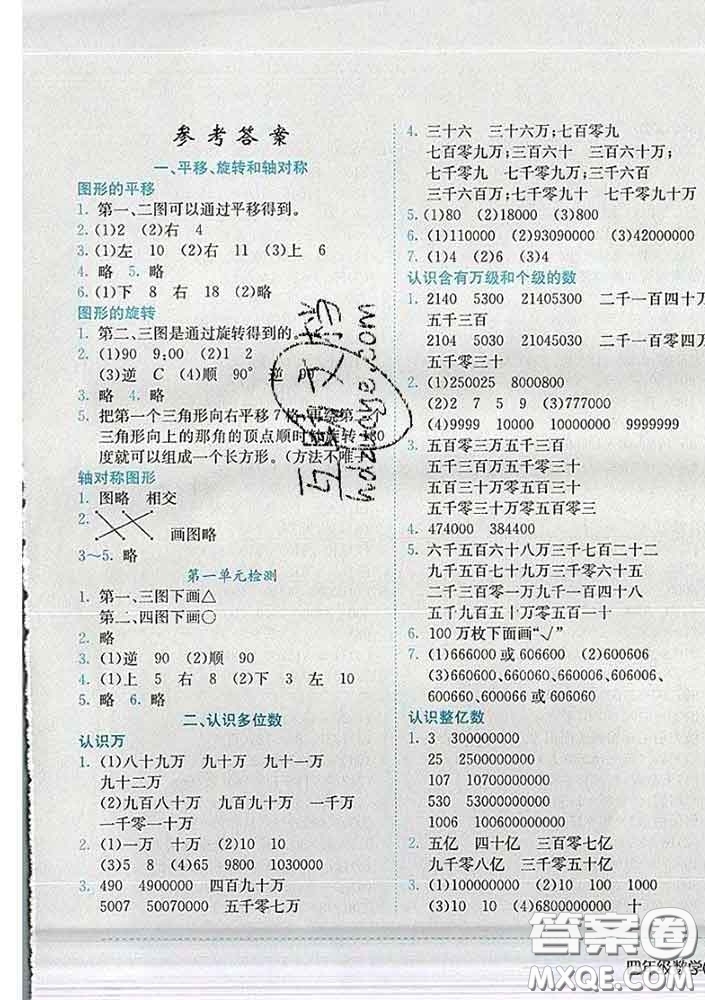 参考答案
一、平移、旋转和轴对称
图形的平移
1. 第一、二图可以通过平移得到。
2. (1)2 (2)右 4
3. (1)左 10 (2)右 11 (3)上 6
4. 略 5. 略
6. (1)下 8 右 18 (2)略
图形的旋转
1. 第二、三图是通过旋转得到的。
2. (1)90 9:00 (2)1 2
(3)逆 C (4)顺 90° 逆 90°
3. 略 4. 略
5. 把第一个三角形向右平移7格,再绕第
三角形向上的那角的顶点顺时针旋转180
度就可以组成一个长方形。(方法不唯
轴对称图形
1. 图略 相交
2. 画图略
3～5. 略
第一单元检测
1. 第一、三图下画△
第二、四图下画○
2. 略
3. (1)逆 90 (2)顺 90
4. (1)上 5 右 8 (2)下 3 左 10
5. 略 6. 略
二、认识多位数
认识万
1. (1)八十九万 九十万 九十一万
九十二万
(2)九百八十万 九百九十万 一千万
一千零一十万
2. (1)一万 十万 (2)10 10
(3)5 8 (4)65 9800 1030000
3. 490 4900000 四百九十万
5007 50070000 五千零七万
4. 三十六 三十六万;七百零九
七百零九万;三百六十 三百六十万;
七千零九 七千零九万;三千六百
三千六百万;七千零九十 七千零九十万
5. (1)80 (2)18000 (3)800
6. (1)110000 (2)93090000 (3)
7. (1)4 (2)6 (3)4
认识含有万级和个级的数
1. 2140 5300 21405300 二千一百四十万
五千三百
2104 5030 21045030 二千一百零四万
五千零三十
2. (1)250025 8000800
(2)2 7 5 9 (3)777000
(4)9999 10000 100000 9999999
3. 五百零三万五千三百
五千零三十万五千三百
五百三十万零五百三十
五千三百万零五百零三
4. 474000 384400
5. 六千五百六十八万三千七百二十二
九千五百七十一万七千三百七十七
二千三百零五万零八百三十八
五千九百五十万零五百一十
6. 100万枚下面画“√”
7. (1)666000或606600 (2)600606
(3)660600、660060、660006、606060、
600660、600066或606006
认识整亿数
1. 3 300000000
25 2500000000
107 10700000000
530 53000000000
1006 100600000000
2. 五亿 四十亿 三百零七亿
九千零八亿 三千五百亿
3. (1)100000000 (2)10 100 1000
(3)10 10 (4)6800000000 十
四年级数学(
互助文档
hdzuoye.com
答案圈
MXQE.COM